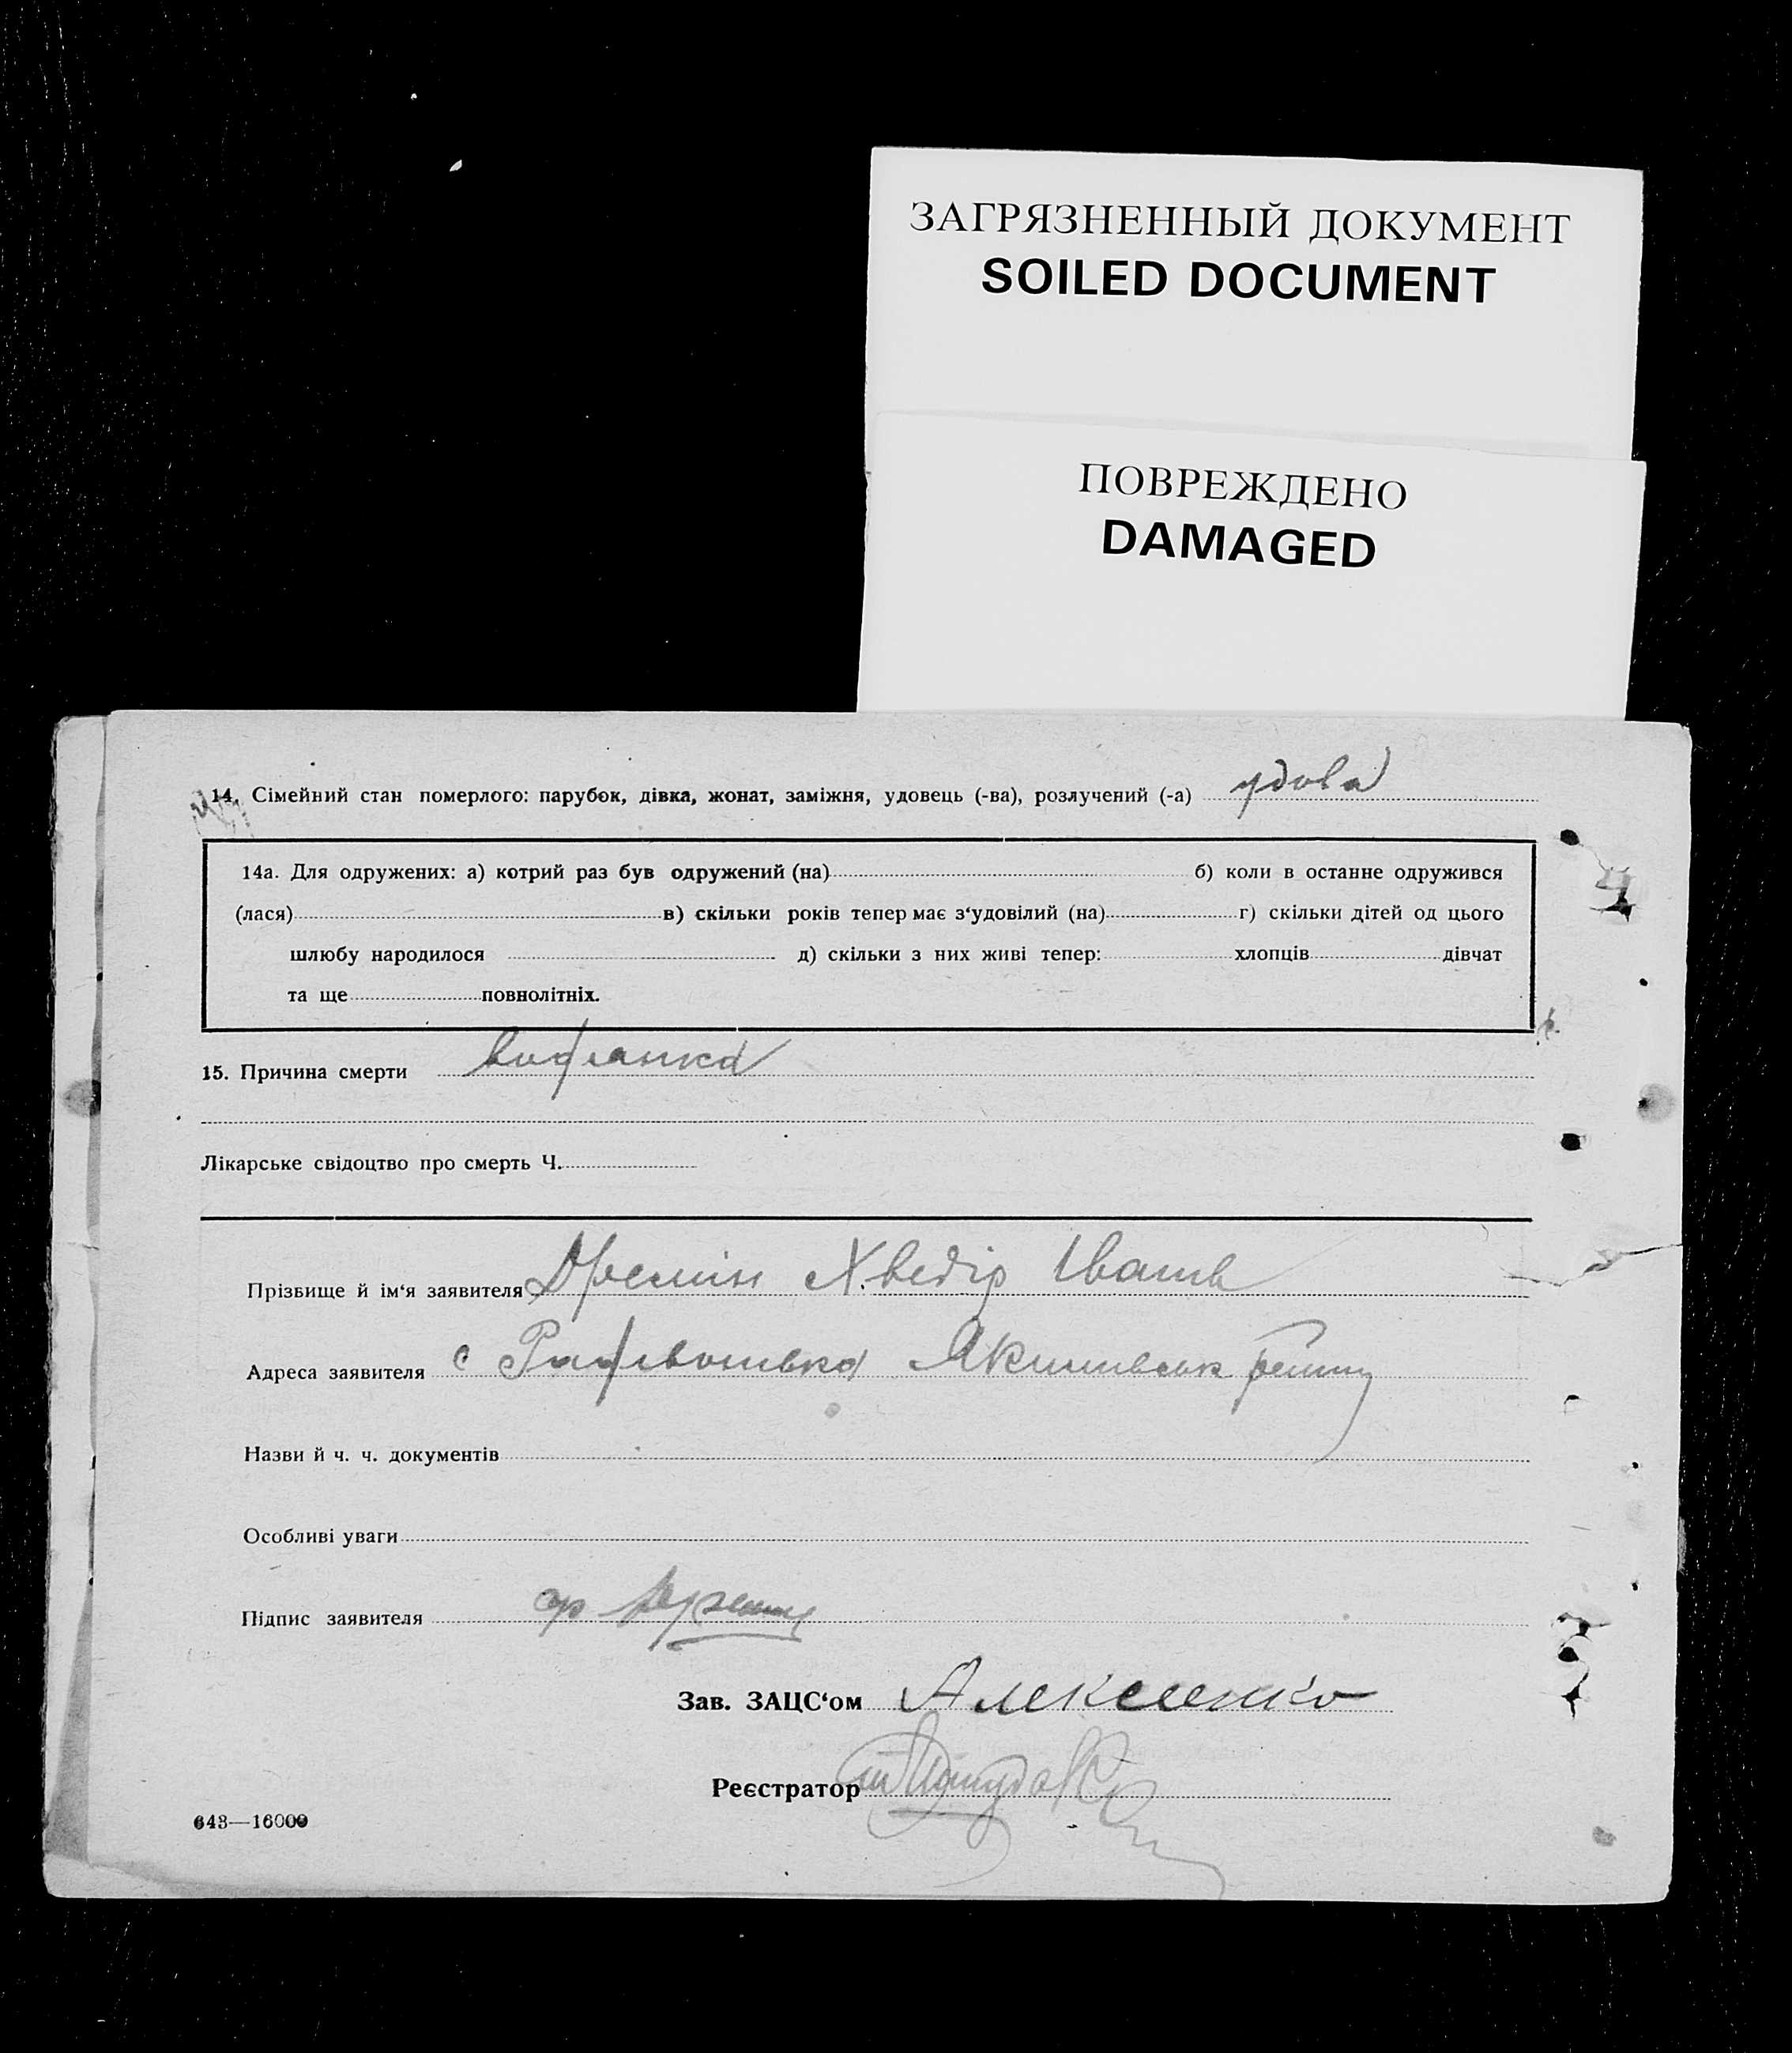 ЗАГРЯЗНЕННЫЙ ДОКУМЕНТ
SOILED DOCUMENT
ПОВРЕЖДЕНО
DAMAGED
14. Сімейний стан померлого: парубок, дівка, жонат, заміжня, удовець (-ва), розлучений (-а) удова
14а. Для одружених: а) котрий раз був одружений (на) б) коли в останне одружився
(лася) в) скільки років тепер має з‘удовілий (на) г) скільки дітей од цього
шлюбу народилося д) скільки з них живі тепер: хлопців дівчат
та ще повнолітніх.
15. Причина смерти
Лікарське свідоцтво про смерть Ч.
Прізвище й ім‘я заявителя Хведір Іванів
Адреса заявителя с
Назви й ч. ч. документів
Особливі уваги
Підпис заявителя гр
Зав. ЗАЦС‘ом Алексеенко
Реєстратор
643—16000